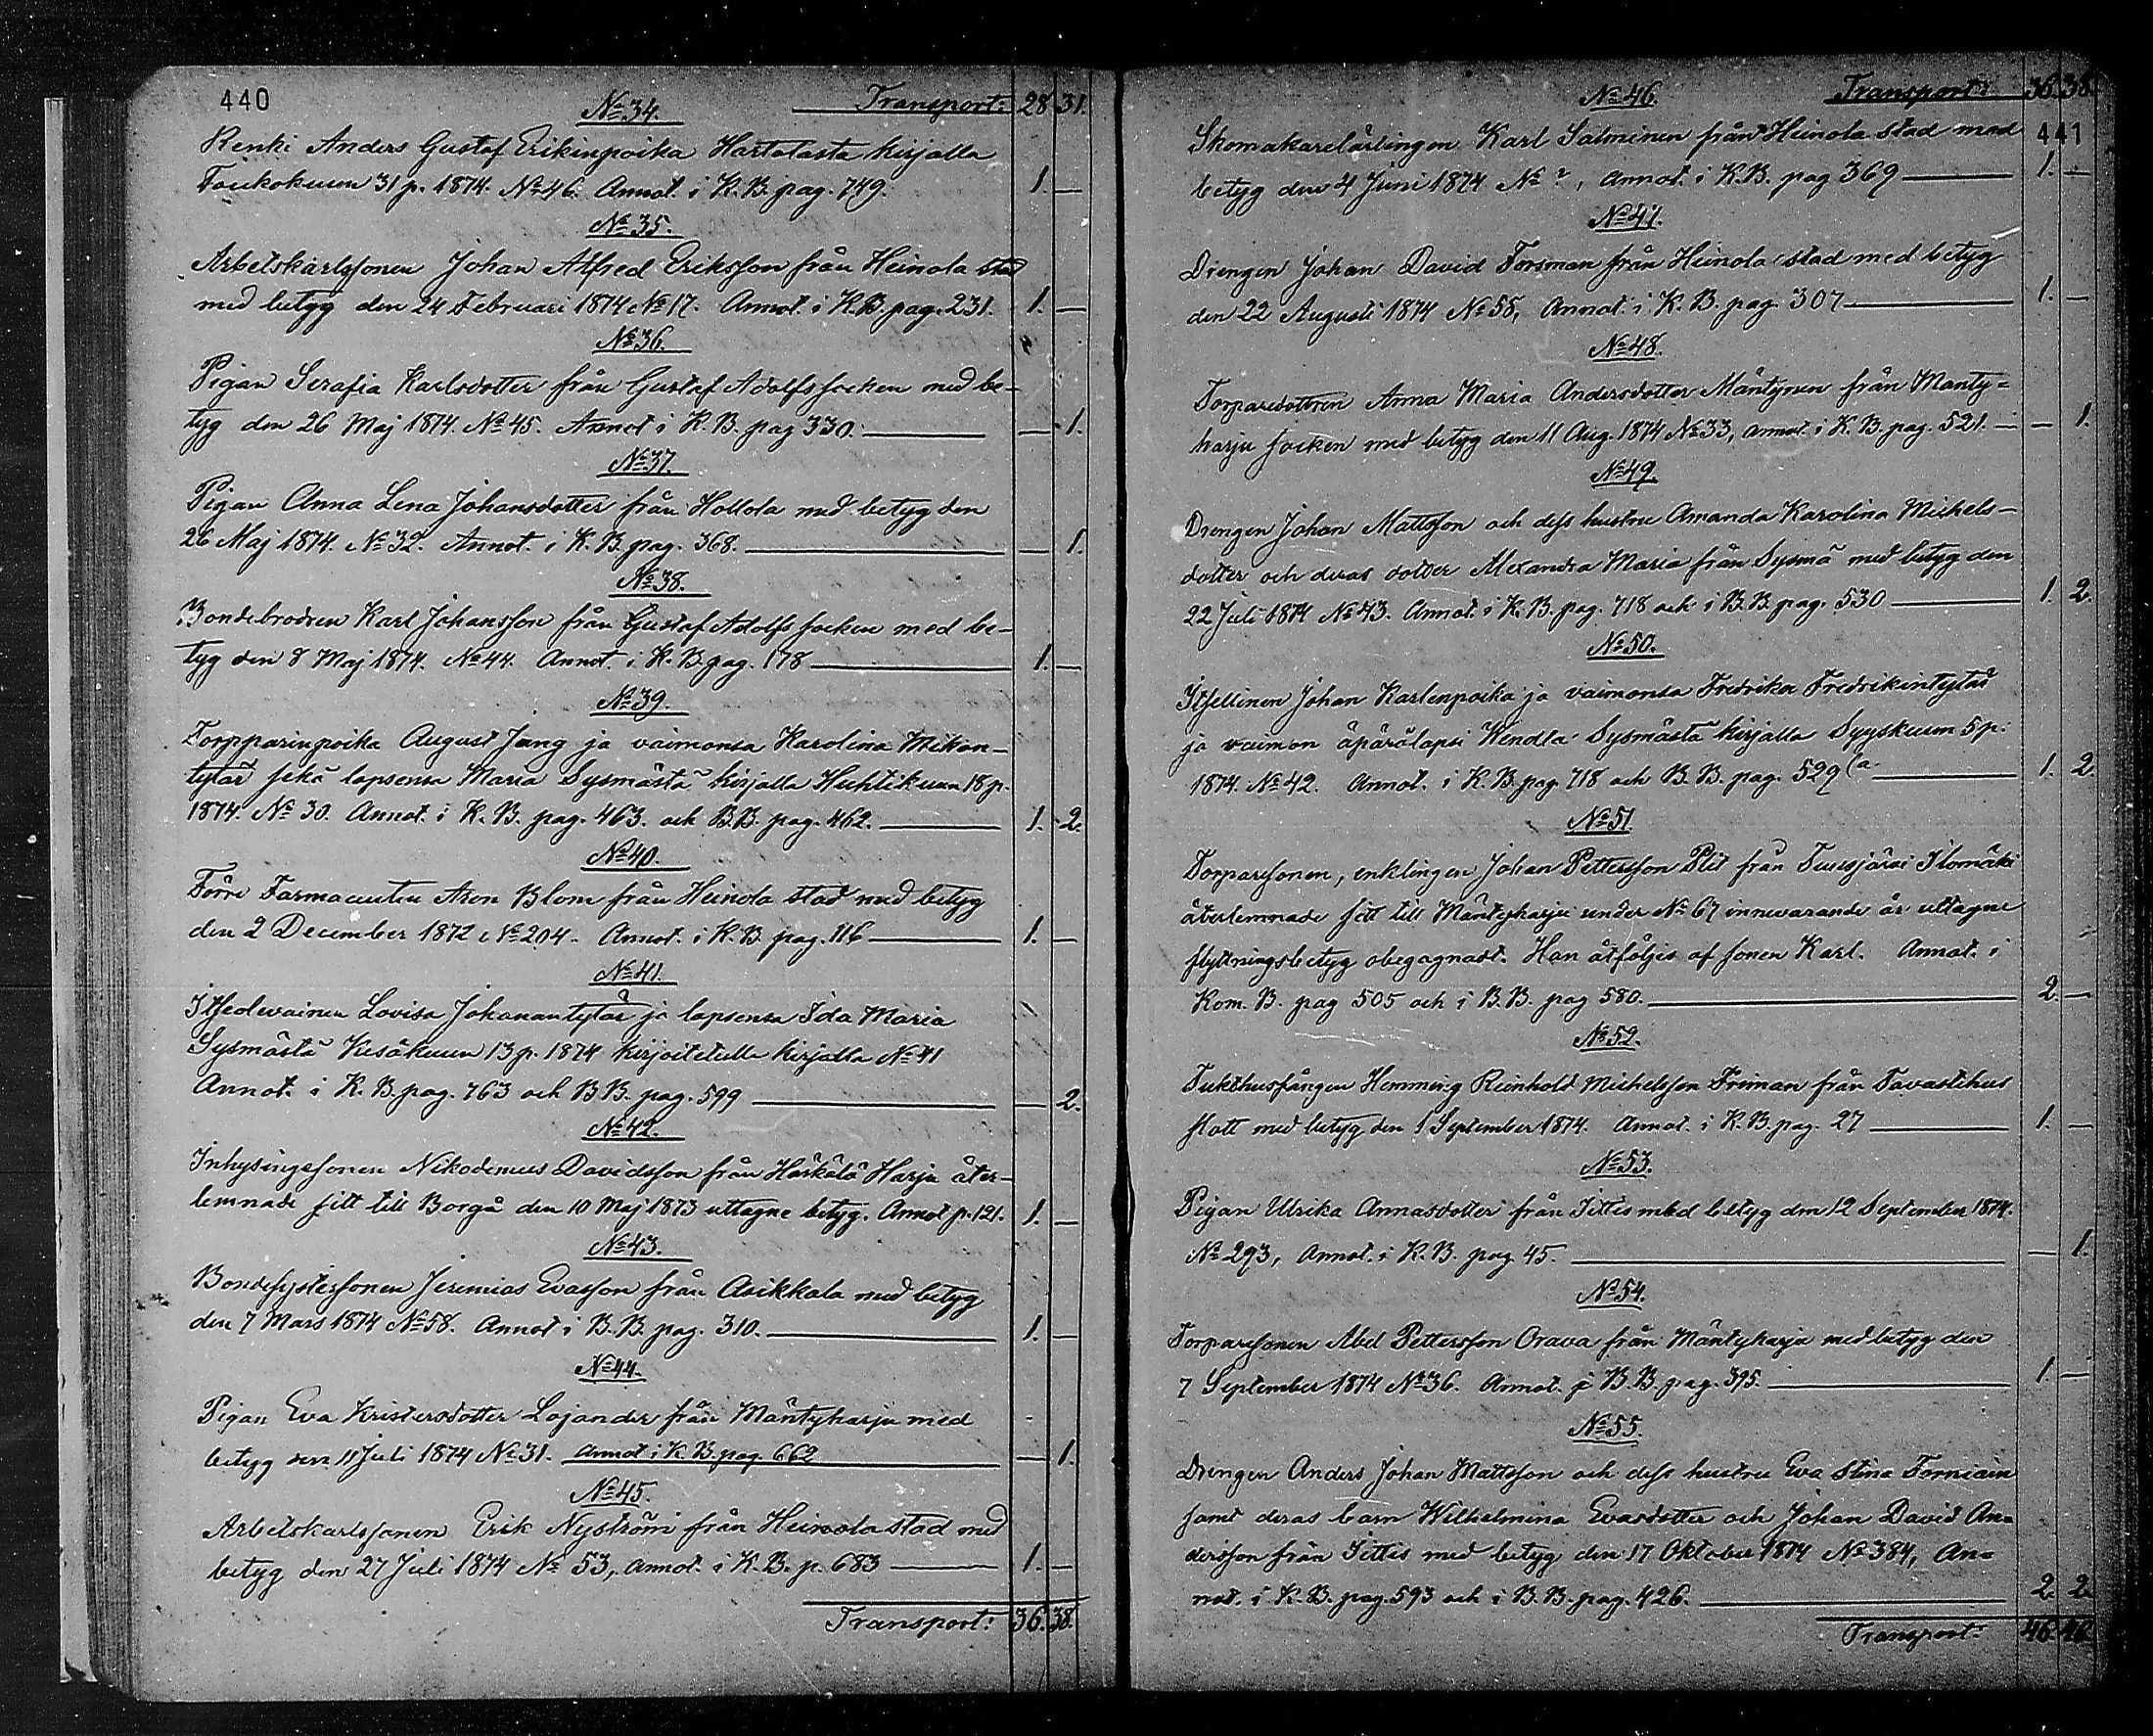 440
No 34. Transport: 28 31.
Renki Anders Gustaf Erikinpoika Hartolasta kirjalla
Toukokuun 31 p. 1874. No 46. Annot. i K. B. pag. 749. 1. —
No 35.
Arbetskarlssonen Johan Alfred Eriksson från Heinola stad
med betyg den 24 Februari 1874 No 17. Annot. i K. B. pag. 231. 1. —
No 36.
Pigan Serafia Karlsdotter från Gustaf Adolfs socken med be-
tyg den 26 Maj 1874. No 45. Annot i K. B. pag 330. — 1.
No 37.
Pigan Anna Lena Johansdotter från Hollola med betyg den
26 Maj 1874. No 32. Annot. i K. B. pag. 368. — 1.
No 38.
Bondebrodren Karl Johansson från Gustaf Adolfs socken med be-
tyg den 8 Maj 1874. No 44. Annot. i K. B. pag. 178 1. —
No 39.
Torpparinpoika August Jang ja vaimonsa Karolina Mikon-
tytär sekä lapsensa Maria Sysmästä kirjalla Huhtikuun 18 p.
1874. No 30. Annot. i K. B. pag. 463. och B. B. pag. 462. 1. 2.
No 40.
Förre Farmaceuten Aron Blom från Heinola stad med betyg
den 2 December 1872 No 204. Annot. i K. B. pag. 116 1. —
No 41.
Itsellvainen Lovisa Johanantytär ja lapsensa Ida Maria
Sysmästä Kesäkuun 13 p. 1874 kirjoitetulla kirjalla No 41
Annot. i K. B. pag. 763 och B. B. pag. 599 — 2.
No 42.
Inhysingssonen Nikodemus Davidsson från Härkälä Harju åter-
lemnade sitt till Borgå den 10 Maj 1873 uttagne betyg. Annot p. 121. 1. —
No 43.
Bondesysterssonen Jeremias Evasson från Asikkala med betyg
den 7 Mars 1874 No 58. Annot i B. B. pag. 310. 1. —
No 44.
Pigan Eva Kristersdotter Lojander från Mäntyharju med
betyg den 11 Juli 1874 No 31. Annot i K. B. pag. 662 — 1.
No 45.
Arbetskarlssonen Erik Nyström från Heinola stad med
betyg den 27 Juli 1874 No 53, annot. i K. B. p. 683 1. —
Transport: 36. 38.
No 46. Transport: 36. 38.
441
Skomakarelärlingen Karl Salminen från Heinola stad med
betyg den 4 Juni 1874 No ?, annot. i K. B. pag 369 1. —
No 47.
Drengen Johan David Forsman från Heinola stad med betyg
den 22 Augusti 1874 No 55, Annot. i K. B. pag. 307 1. —
No 48.
Torparedottren Anna Maria Andersdotter Mäntynen från Mänty-
harju socken med betyg den 11 Aug. 1874 No 33, annot. i K. B. pag. 521. — 1.
No 49.
Drengen Johan Mattsson och dess hustru Amanda Karolina Michels-
dotter och deras dotter Alexandra Maria från Sysmä med betyg den
22 Juli 1874 No 43. Annot. i K. B. pag. 718 och i B. B. pag. 530 1. 2.
No 50.
Itsellinen Johan Karlenpoika ja vaimonsa Fredrika Fredrikintytär
ja vaimon äpärälapsi Wendla Sysmästä kirjalla Syyskuun 5 p.
1874. No 42. Annot. i K. B. pag. 718 och B. B. pag. 529 (a. 1. 2.
No 51.
Torparesonen, enklingen Johan Pettersson Plit från Tuusjärvi Ilomäki
återlemnade sitt till Mäntyharju under No 67 innevarande år uttagne
flyttningsbetyg obegagnadt. Han åtföljes af sonen Karl. Annot. i
Kom. B. pag 505 och i B. B. pag 580. 2. —
No 52.
Tukthusfången Hemming Reinhold Michelsson Friman från Tavastehus
slott med betyg den 1 September 1874. Annot. i K. B. pag. 27 1. —
No 53.
Pigan Ulrika Annasdotter från Iittis med betyg den 12 September 1874.
No 293, Annot. i K. B. pag. 45. — 1.
No 54.
Torparesonen Abel Pettersson Orava från Mäntyharju med betyg den
7 September 1874 No 36. Annot. i B. B. pag. 395. 1. —
No 55.
Drengen Anders Johan Mattsson och dess hustru Eva Stina Torniain
samt deras barn Wilhelmina Evasdotter och Johan David An-
dersson från Iittis med betyg den 17 Oktober 1874 No 384, An-
not. i K. B. pag. 593 och i B. B. pag. 426. 2. 2.
Transport: 46. 46.